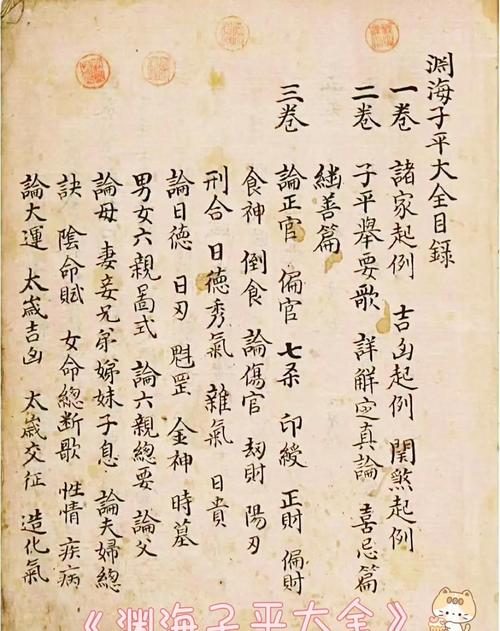 渊海子平大全目録
一卷 諸家起例 吉凶起例 関煞起例
二卷 子平舉要歌 詳解定真論 喜忌篇
継善篇
三卷 論正官 偏官 七杀 印綬 正財 偏財
食神 倒食 論傷官 劫財 陽刃
刑合 日德秀氣 雜氣 日貴
論日德 日刃 魁罡 金神 時墓
男女六親啚式 論六親總要 論父
論母 妻妾兄弟姊妹子息 論夫婦總
訣 陰命賦 女命總断歌 性情 疾病
論大運 太歲吉凶 太歲交征 造化氣
《渊海子平大全》